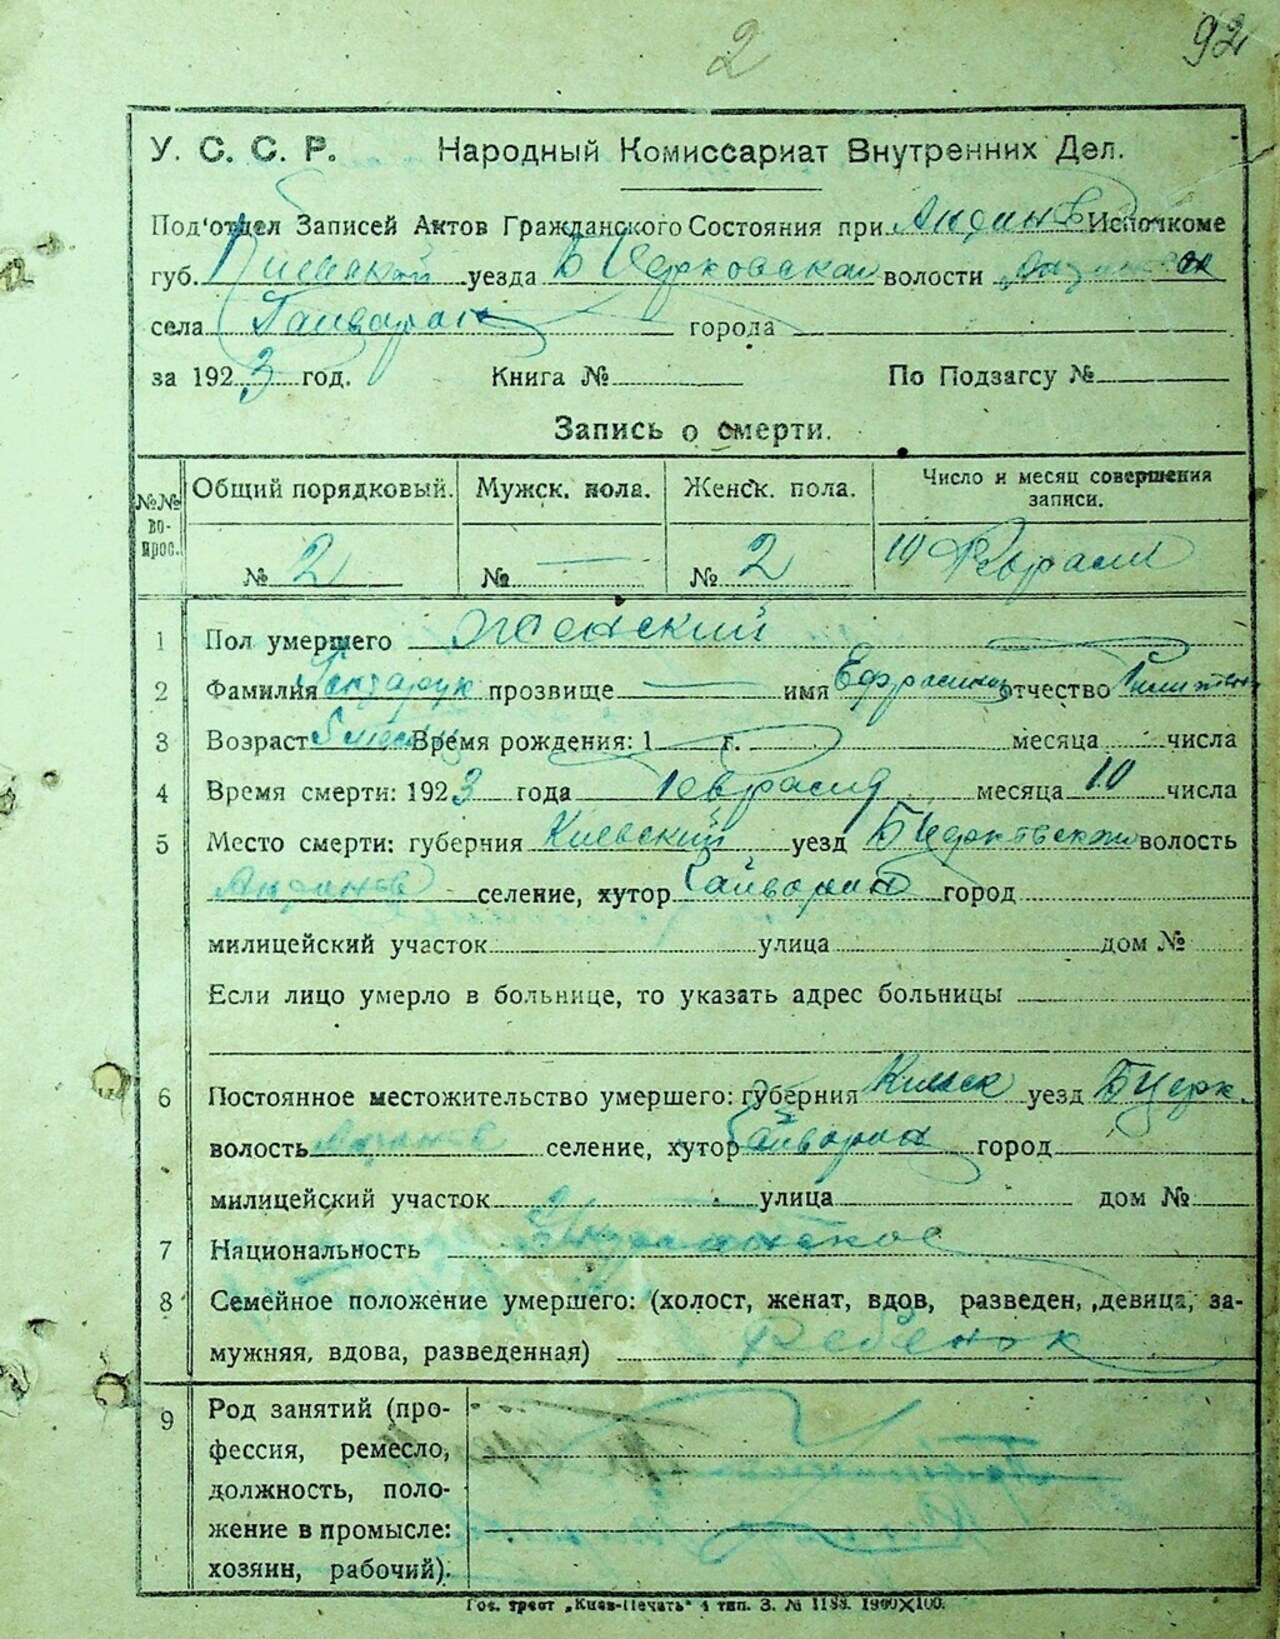 2 92
У. С. С. Р. Народный Комиссариат Внутренних Дел.
Под'отдел Записей Актов Гражданского Состояния при Исполкоме
губ. Киевской уезда Б Церковской волости
села Гайворон города
за 1923 год. Книга № По Подзагсу №
Запись о смерти.
№№ во-прос. Общий порядковый. Мужск. пола. Женск. пола. Число и месяц совершения записи.
№ 2 № — № 2 10 Февраля
1 Пол умершего Женский
2 Фамилия прозвище — имя отчество
3 Возраст Время рождения: 1 г. месяца числа
4 Время смерти: 1923 года Февраля месяца 10 числа
5 Место смерти: губерния Киевский уезд Б Церковской волость
селение, хутор Гайворон город
милицейский участок улица дом №
Если лицо умерло в больнице, то указать адрес больницы
6 Постоянное местожительство умершего: губерния Киевск уезд Б Церк.
волость селение, хутор Гайворон город
милицейский участок улица дом №
7 Национальность
8 Семейное положение умершего: (холост, женат, вдов, разведен, девица, за-
мужняя, вдова, разведенная) Ребенок
9 Род занятий (про-
фессия, ремесло,
должность, поло-
жение в промысле:
хозяин, рабочий).
Гос. трест „Киев-Печать" 4 тип. З. № 1188. 1900X100.